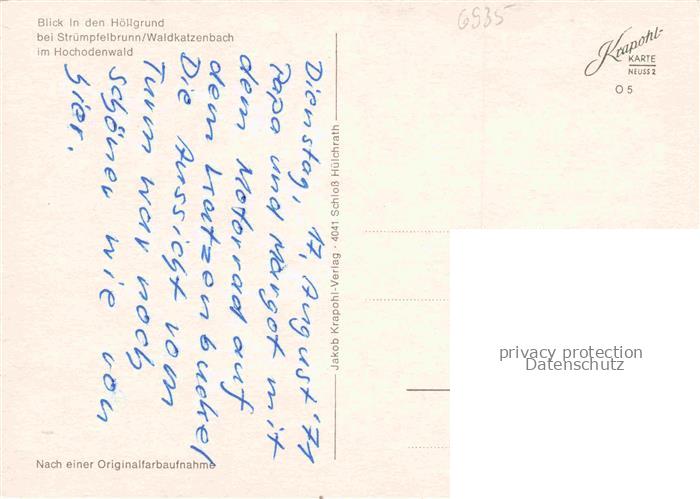 Blick in den Höllgrund
bei Strümpfelbrunn/Waldkatzenbach
im Hochodenwald
6935
Krapohl-
KARTE
NEUSS 2
O 5
Dienstag, 17, August '71
Papa und Margot mit
dem Motorrad auf
dem Katzenbuckel
Die Aussicht vom
Turm war noch
schöner wie von
hier.
Jakob Krapohl-Verlag · 4041 Schloß Hülchrath
privacy protection
Datenschutz
Nach einer Originalfarbaufnahme